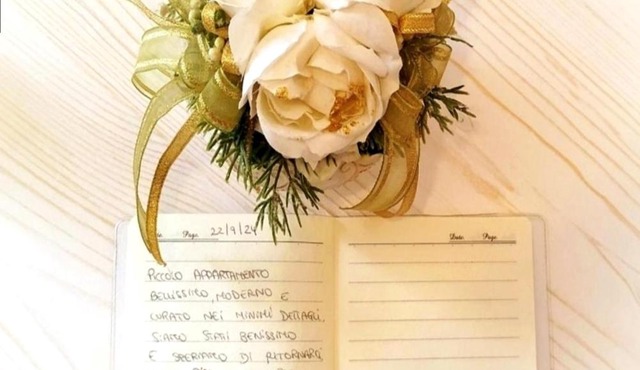 Page 22/9/24
Date Page
PICCOLO APPARTAMENTO
BELLISSIMO, MODERNO E
CURATO NEI MINIMI DETTAGLI.
SIAMO STATI BENISSIMO
E SPERIAMO DI RITORNARCI